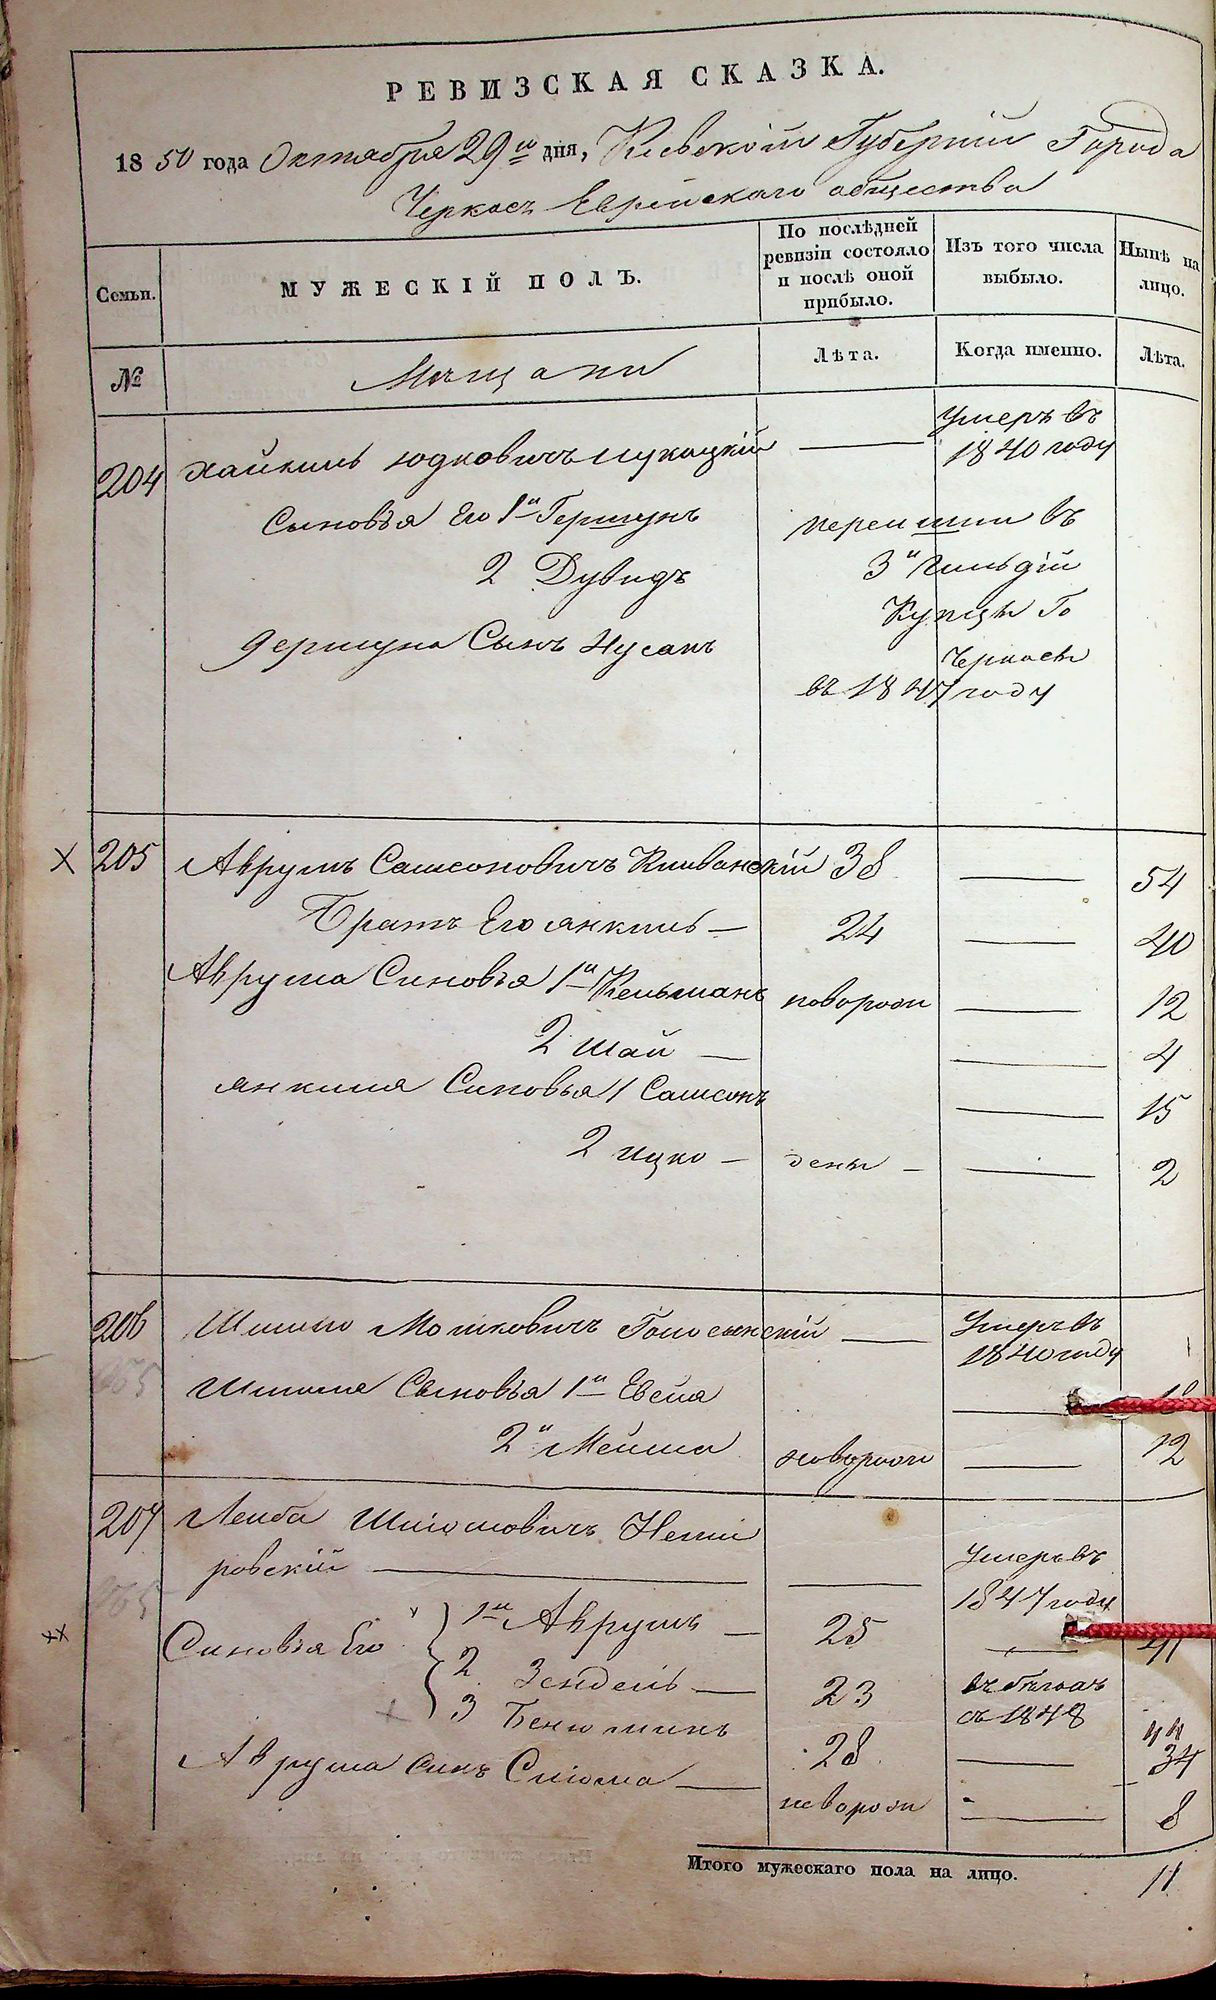 РЕВИЗСКАЯ СКАЗКА.
18 50 года Октября 29 го дня, Кіевской Губерніи Города
Черкасъ Еврейскаго общества
Семьи.
МУЖЕСКІЙ ПОЛЪ.
По послѣдней
ревизіи состояло
и послѣ оной
прибыло.
Изъ того числа
выбыло.
Нынѣ на
лицо.
№
Мѣщане
Лѣта.
Когда именно.
Лѣта.
204 Хайкель Юдковичъ
— Умеръ въ
1840 году
Сыновья Его 1й Гершунъ
2 Дувидъ
Гершуна Сынъ Нусанъ
перешли въ
3й Гильдіи
Купцы Го
Черкасы
въ 1847 году
X 205 Аврумъ Самсоновичъ 38 — 54
Братъ Его Янкель — 24 — 40
Аврума Синовья 1й Кельманъ новорожд — 12
2 Шай — — 4
Янкеля Синовья 1 Самсонъ — 15
2 Ицко — — — 2
206 Шлиомо Мошковичъ — Умеръ въ
1840 году
Сыновья 1й — 18
2й новорожд — 12
207 Лейба Шлiомовичъ Неми
ровскій — — Умеръ въ
1847 году
xx Синовья Его 1й Аврумъ — 25 — 41
2 Зендель — 23 въ бѣгахъ
съ 1848
3 Беніоминъ 28 — 44
34
Аврума сынъ Слiома — новорожд — 8
Итого мужескаго пола на лицо. 11